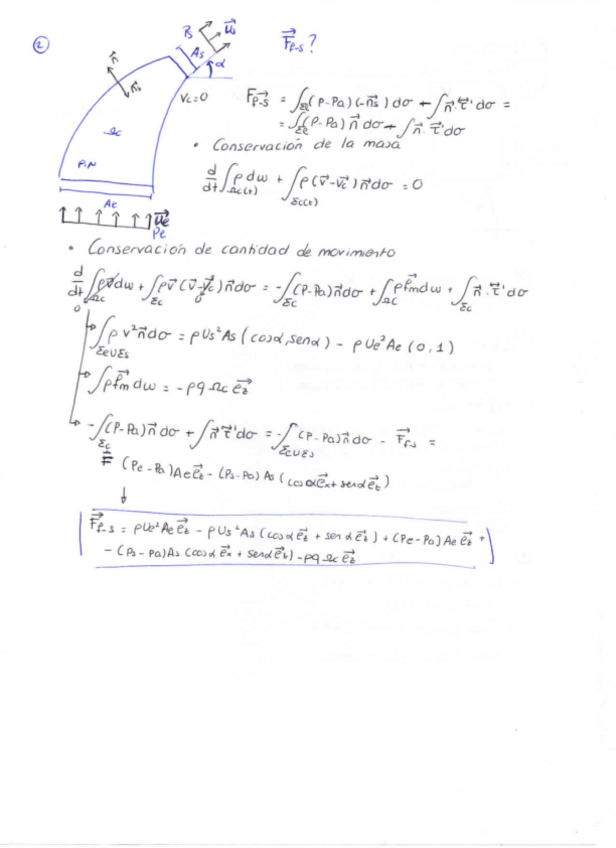 ②
B Us
As
α
F⃗f-s ?
n⃗
n⃗s
Vc=0
Ωc
P.N
Ae
U⃗e
Pe
F⃗f-s = ∫ΣL (P-Pa)(-n⃗s) dσ + ∫ n⃗·τ⃗' dσ =
= ∫ΣL (P-Pa) n⃗ dσ + ∫ n⃗·τ⃗' dσ
• Conservación de la masa
d/dt ∫Ωc(t) ρ dω + ∫Σc(t) ρ (v⃗-v⃗c) n⃗ dσ = 0
• Conservación de cantidad de movimiento
d/dt ∫Ωc ρv⃗ dω + ∫Σc ρv⃗ (v⃗-v⃗c) n⃗ dσ = -∫Σc (P-Pa) n⃗ dσ + ∫Ωc ρf⃗m dω + ∫Σc n⃗·τ⃗' dσ
0 0
∫ΣeUΣs ρ v² n⃗ dσ = ρ Us² As (cosα, senα) - ρ Ue² Ae (0,1)
∫ ρf⃗m dω = -ρg Ωc e⃗z
-∫Σc (P-Pa) n⃗ dσ + ∫ n⃗ τ⃗' dσ = -∫ΣeUΣs (P-Pa) n⃗ dσ - F⃗f-s =
= (Pe-Pa) Ae e⃗z - (Ps-Pa) As (cosα e⃗x + senα e⃗z)
F⃗f-s = ρUe² Ae e⃗z - ρUs² As (cosα e⃗z + senα e⃗z) + (Pe-Pa) Ae e⃗z +
- (Ps-Pa) As (cosα e⃗x + senα e⃗z) - ρg Ωc e⃗z